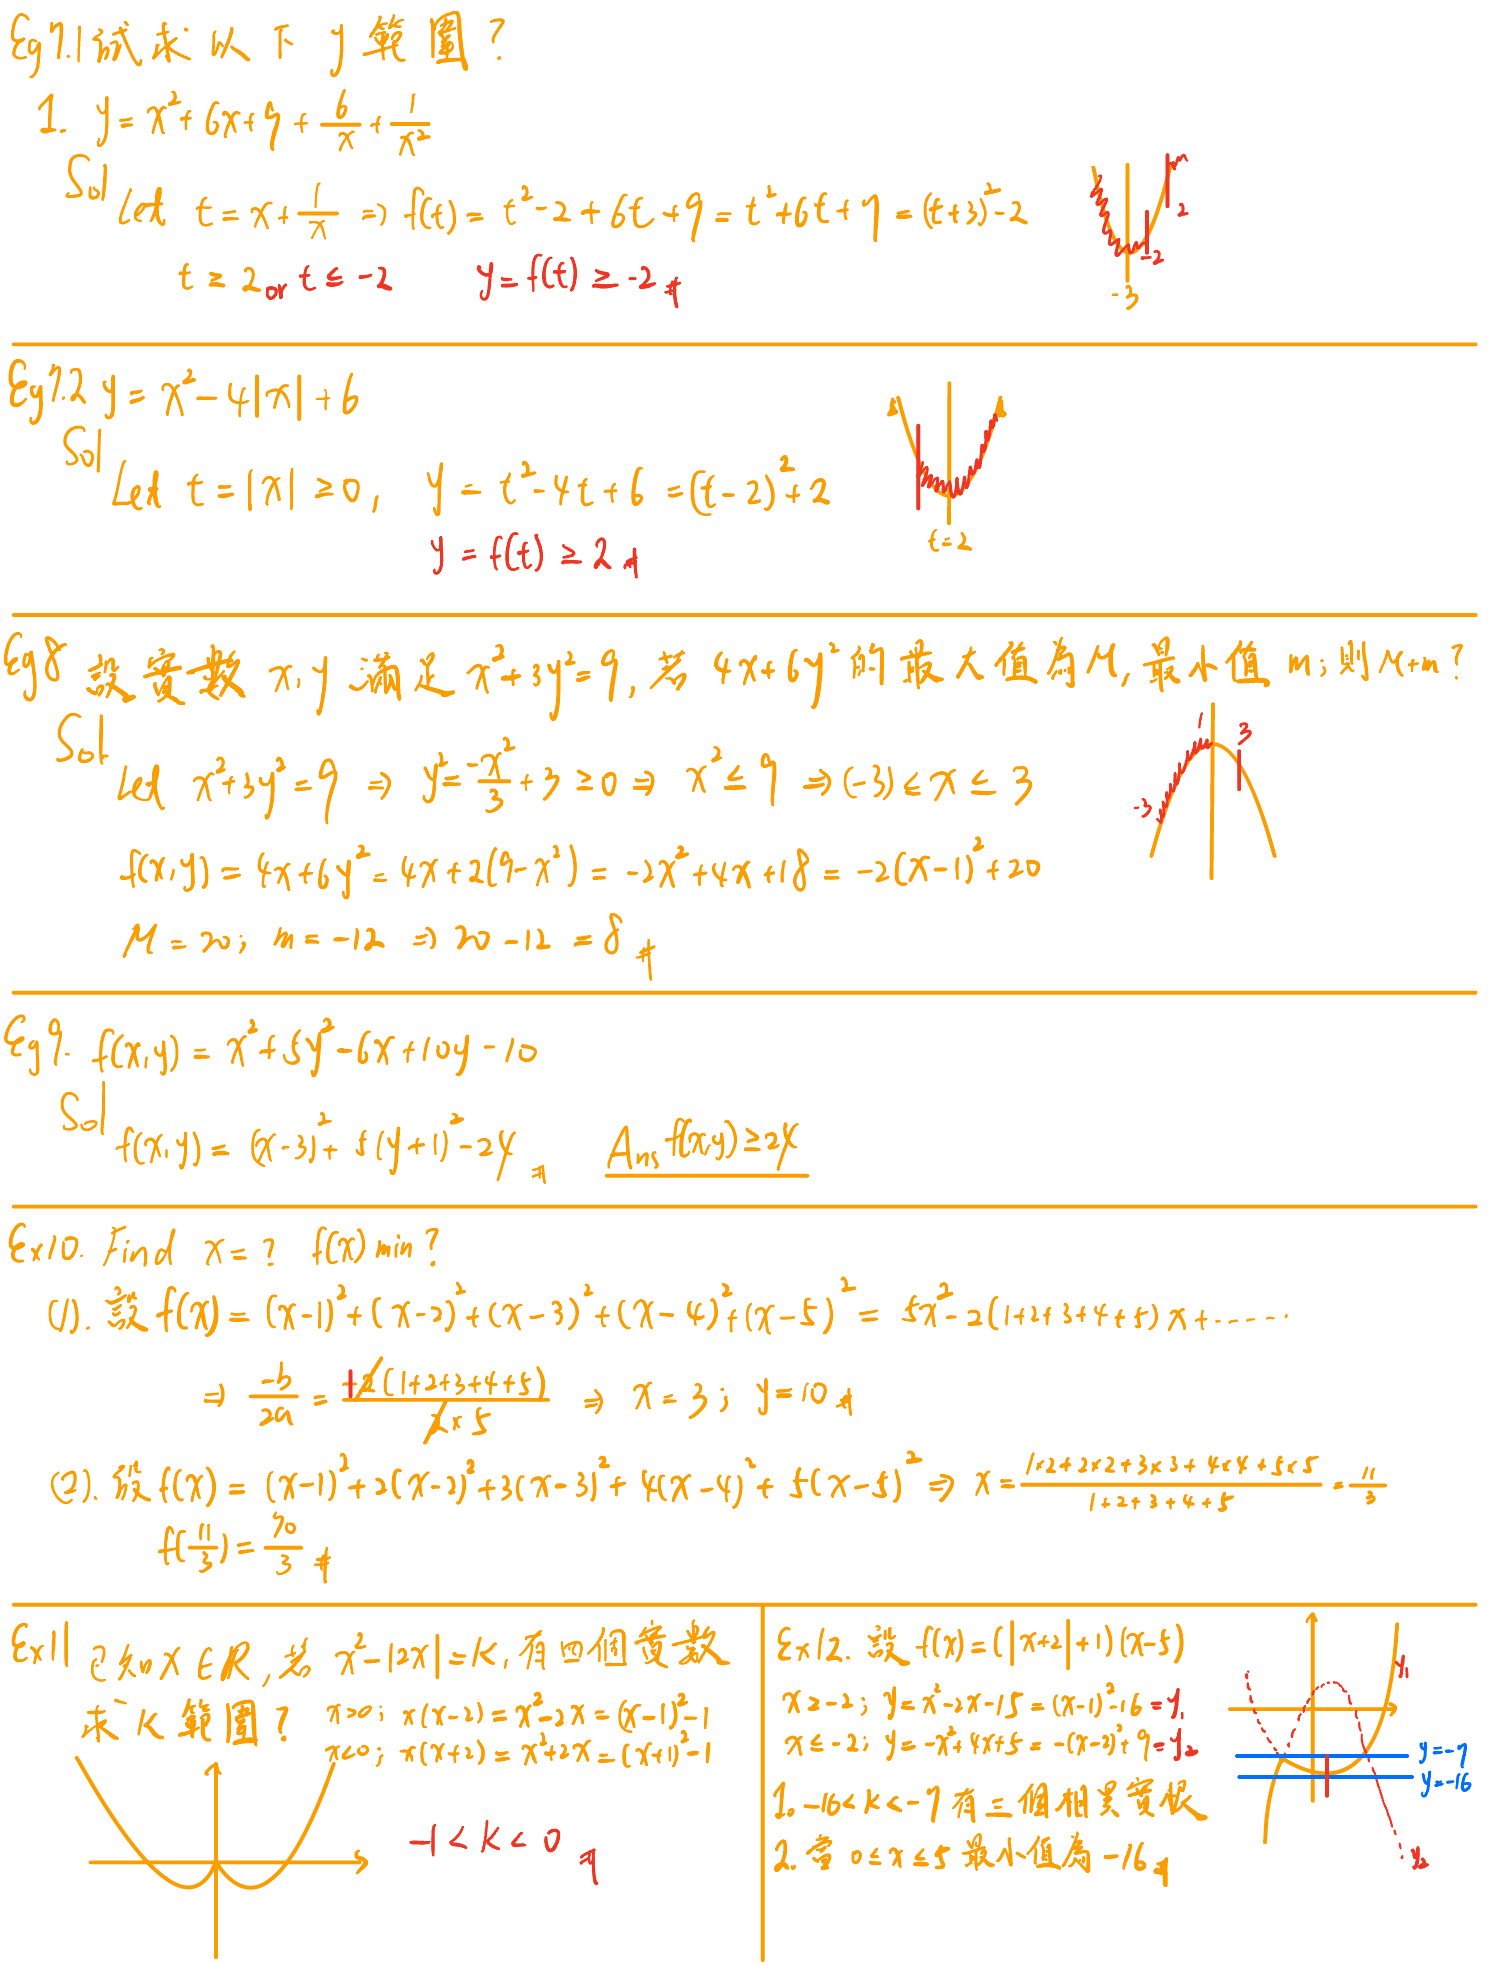 Eg7.1 試求以下 y 範圍？
1. y = x² + 6x + 9 + 6/x + 1/x²
Sol
Let t = x + 1/x ⇒ f(t) = t² - 2 + 6t + 9 = t² + 6t + 7 = (t+3)² - 2
t ≥ 2 or t ≤ -2 y = f(t) ≥ -2 #
2
-2
-3
Eg7.2 y = x² - 4|x| + 6
Sol
Let t = |x| ≥ 0, y = t² - 4t + 6 = (t-2)² + 2
y = f(t) ≥ 2 #
t=2
Eg8 設實數 x, y 滿足 x² + 3y² = 9, 若 4x + 6y² 的最大值為 M, 最小值 m; 則 M+m?
Sol
Let x² + 3y² = 9 ⇒ y² = -x²/3 + 3 ≥ 0 ⇒ x² ≤ 9 ⇒ (-3) ≤ x ≤ 3
1
3
-3
f(x,y) = 4x + 6y² = 4x + 2(9-x²) = -2x² + 4x + 18 = -2(x-1)² + 20
M = 20; m = -12 ⇒ 20 - 12 = 8 #
Eg9. f(x,y) = x² + 5y² - 6x + 10y - 10
Sol
f(x,y) = (x-3)² + 5(y+1)² - 24 # Ans f(x,y) ≥ 24
Ex10. Find x = ? f(x) min?
(1). 設 f(x) = (x-1)² + (x-2)² + (x-3)² + (x-4)² + (x-5)² = 5x² - 2(1+2+3+4+5)x + ......
⇒ -b/2a = +2(1+2+3+4+5)/2×5 ⇒ x = 3; y = 10 #
(2). 設 f(x) = (x-1)² + 2(x-2)² + 3(x-3)² + 4(x-4)² + 5(x-5)² ⇒ x = 1×2+2×2+3×3+4×4+5×5/1+2+3+4+5 = 11/3
f(11/3) = 70/3 #
Ex11 已知 x ∈ R, 若 x² - |2x| = k, 有四個實數
求 k 範圍？ x>0; x(x-2) = x² - 2x = (x-1)² - 1
x<0; x(x+2) = x² + 2x = (x+1)² - 1
-1 < k < 0 #
Ex12. 設 f(x) = (|x+2|+1)(x-5)
x ≥ -2; y = x² - 2x - 15 = (x-1)² - 16 = y₁
x ≤ -2; y = -x² + 4x + 5 = -(x-2)² + 9 = y₂
1. -16 < k < -7 有三個相異實根
2. 當 0 ≤ x ≤ 5 最小值為 -16 #
y₁
y=-7
y=-16
y₂